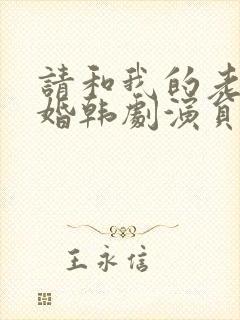 請和我的老
婚韩劇演員
王永信